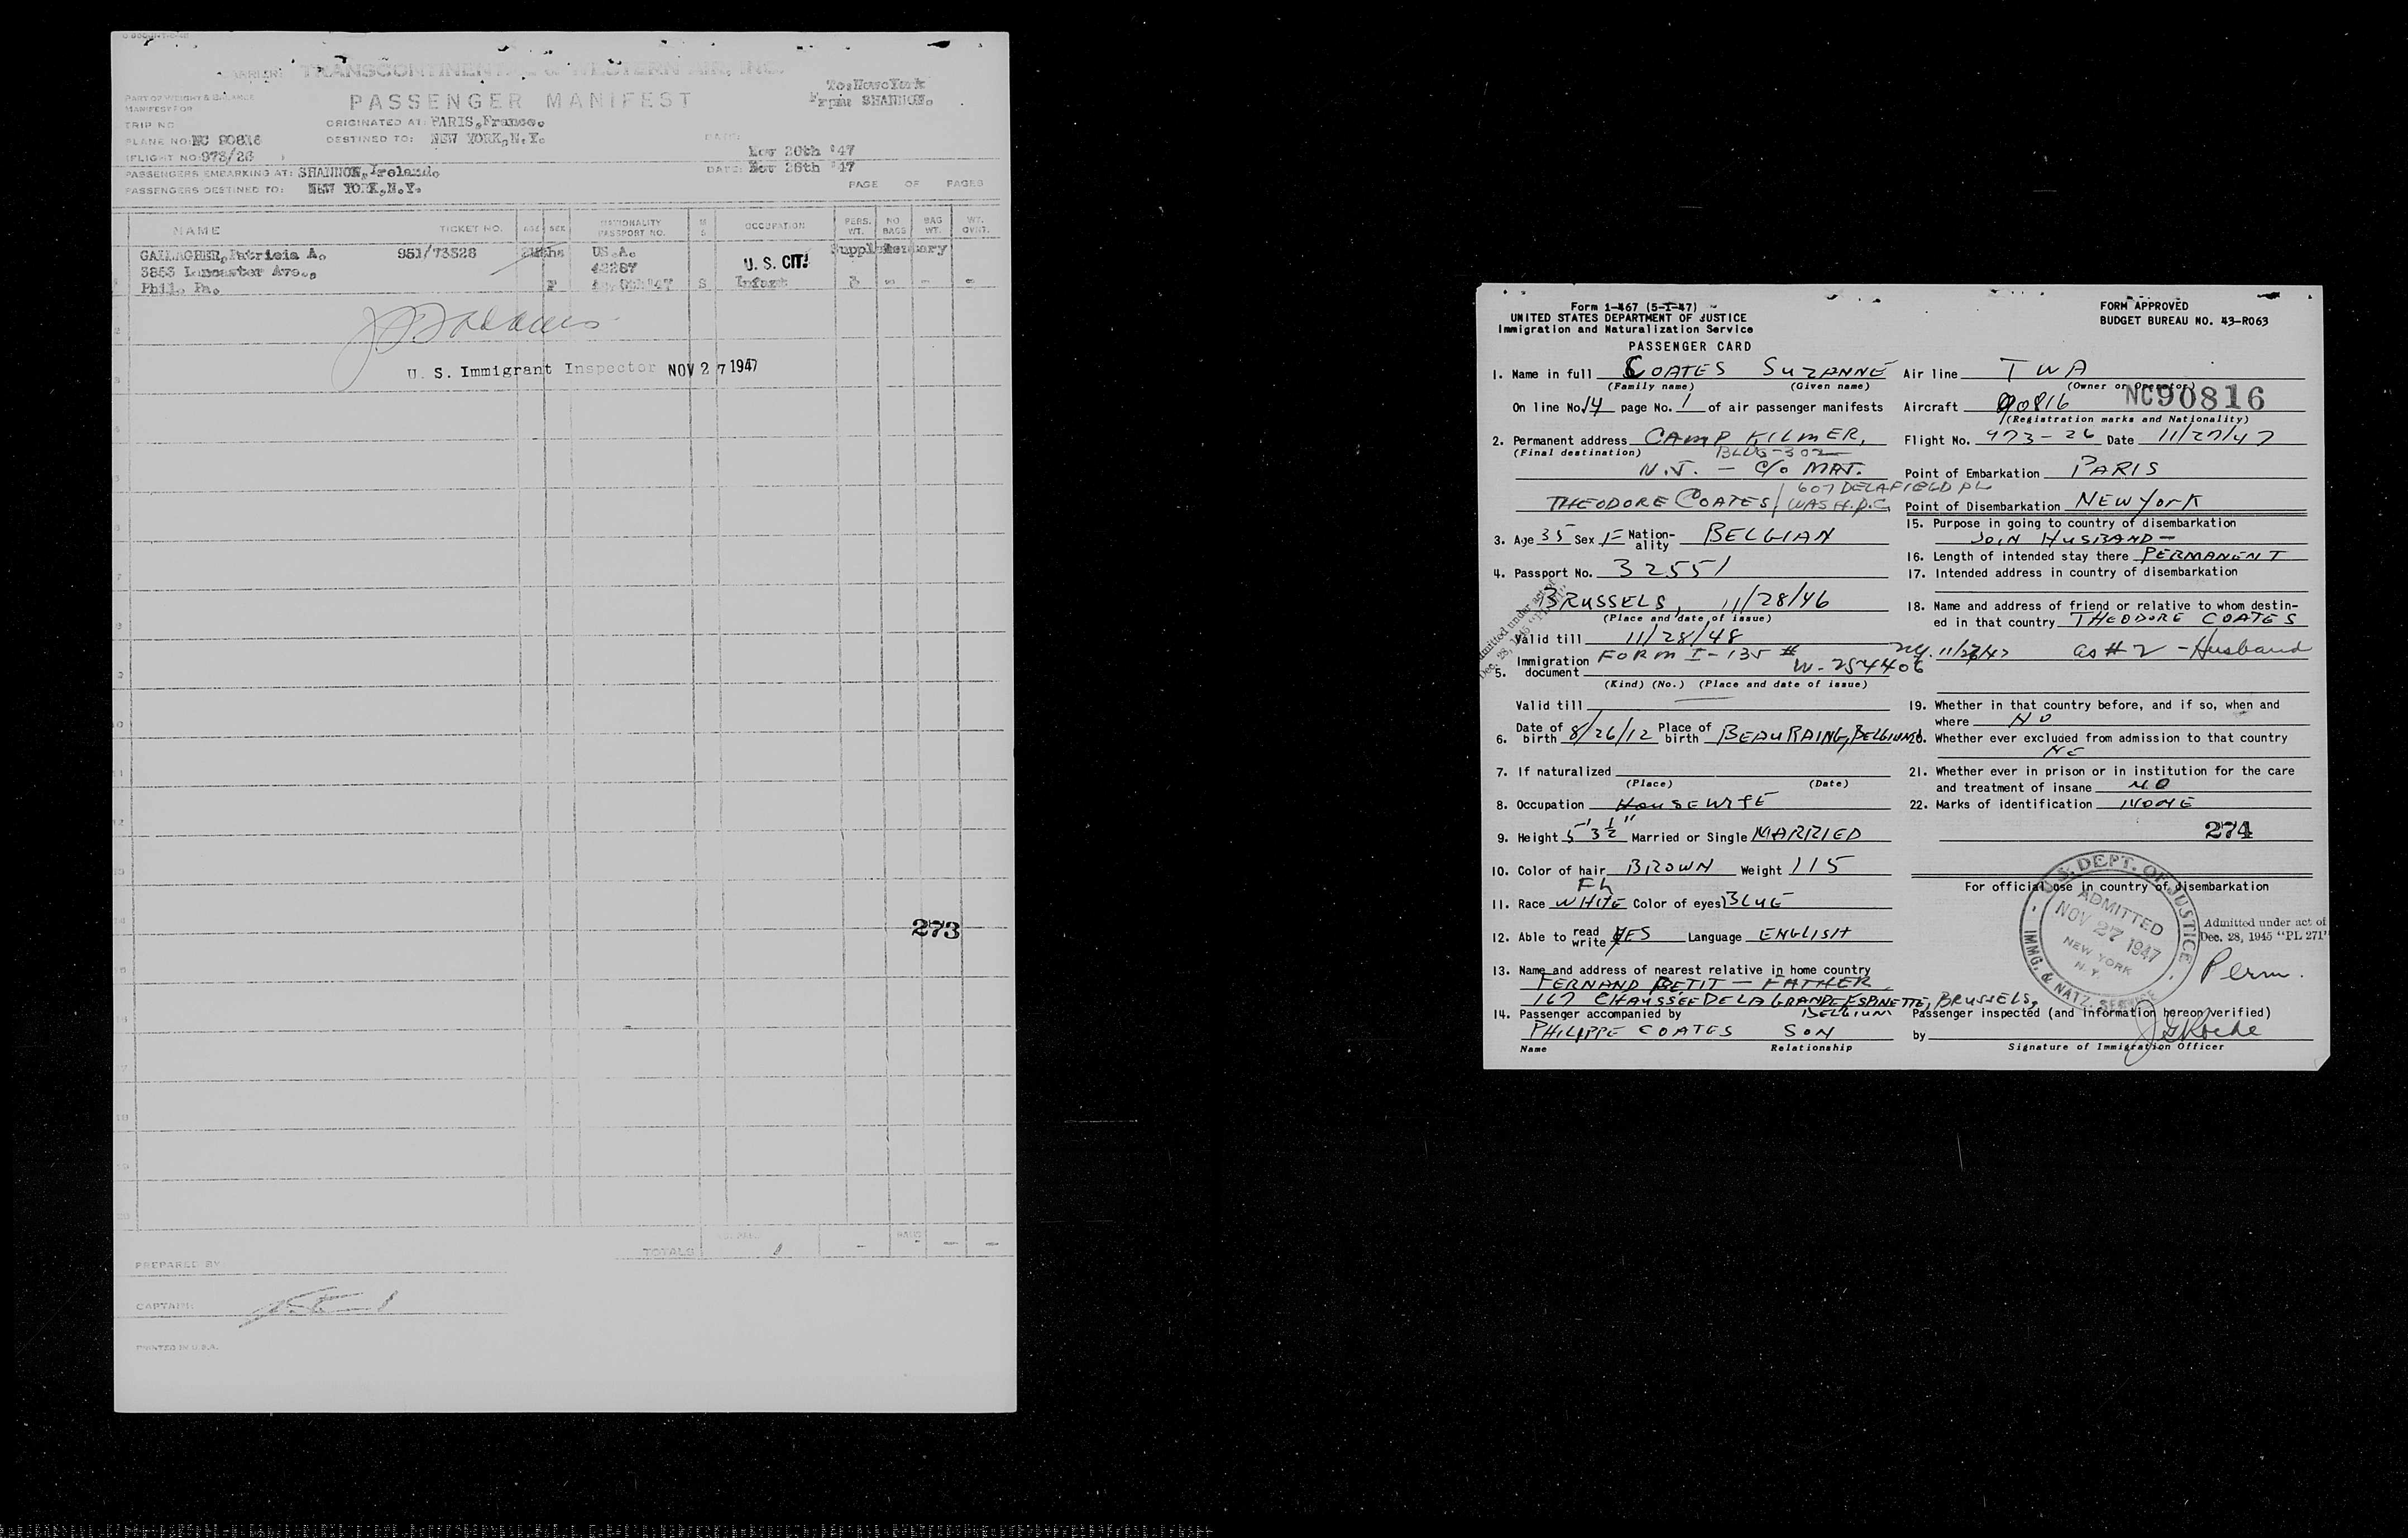 CARRIER: TRANSCONTINENTAL & WESTERN AIR, INC.
To: New York
From: SHANNON.
PART OF WEIGHT & BALANCE
MANIFEST FOR
PASSENGER MANIFEST
TRIP NO.
ORIGINATED AT: PARIS, France.
PLANE NO: NC 90816
DESTINED TO: NEW YORK, N.Y.
DATE:
(FLIGHT NO: 973/26 )
Nov 26th '47
PASSENGERS EMBARKING AT: SHANNON, Ireland.
DATE: Nov 26th '47
PASSENGERS DESTINED TO: NEW YORK, N.Y.
PAGE OF PAGES
NAME TICKET NO. AGE SEX NATIONALITY PASSPORT NO. M S OCCUPATION PERS. WT. NO BAGS BAG WT. WT. OVHT.
Supplementary
GALLAGHER, Patricia A. 951/73528 US.A.
3853 Lancaster Ave., 42287 U. S. CIT!
Phil. Pa. F S Infant - - -
U. S. Immigrant Inspector NOV 27 1947
273
TOTALS 1 - - -
PREPARED BY
CAPTAIN:
PRINTED IN U.S.A.
Form I-467 (5-1-47)
UNITED STATES DEPARTMENT OF JUSTICE
Immigration and Naturalization Service
FORM APPROVED
BUDGET BUREAU NO. 43-R063
PASSENGER CARD
1. Name in full COATES SUZANNE
(Family name) (Given name)
On line No. 14 page No. 1 of air passenger manifests
2. Permanent address CAMP KILMER,
(Final destination) BLDG-302
N.J. - C/O MAT.
THEODORE COATES / 607 DELAFIELD PL
WASH.D.C.
3. Age 35 Sex F Nationality BELGIAN
4. Passport No. 32551
BRUSSELS, 11/28/46
(Place and date of issue)
Valid till 11/28/48
Admitted under act of
Dec. 28, 1945 "PL 271"
5. Immigration document FORM I-135 # W-254406
(Kind) (No.) (Place and date of issue)
Valid till
6. Date of birth 8/26/12 Place of birth BEAURAING, BELGIUM
7. If naturalized
(Place) (Date)
8. Occupation HOUSEWIFE
9. Height 5' 3 1/2" Married or Single MARRIED
10. Color of hair BROWN Weight 115
Fh
11. Race WHITE Color of eyes BLUE
12. Able to read write YES Language ENGLISH
13. Name and address of nearest relative in home country
FERNAND PETIT - FATHER
167 CHAUSSÉE DE LA GRANDE ESPINETTE, BRUSSELS,
BELGIUM
14. Passenger accompanied by
PHILIPPE COATES SON
Name Relationship
Air line TWA
(Owner or Operator)
Aircraft 90816 NC90816
(Registration marks and Nationality)
Flight No. 973-26 Date 11/27/47
Point of Embarkation PARIS
Point of Disembarkation NEW YORK
15. Purpose in going to country of disembarkation
JOIN HUSBAND-
16. Length of intended stay there PERMANENT
17. Intended address in country of disembarkation
18. Name and address of friend or relative to whom destined in that country THEODORE COATES
NY. 11/27/47 as # 2 - Husband
19. Whether in that country before, and if so, when and
where NO
20. Whether ever excluded from admission to that country
NO
21. Whether ever in prison or in institution for the care
and treatment of insane NO
22. Marks of identification NONE
274
For official use in country of disembarkation
U.S. DEPT. OF JUSTICE
ADMITTED
NOV 27 1947
NEW YORK
N.Y.
IMMG. & NATZ. SERVICE
Admitted under act of
Dec. 28, 1945 "PL 271"
Perm.
Passenger inspected (and information hereon verified)
by
Signature of Immigration Officer